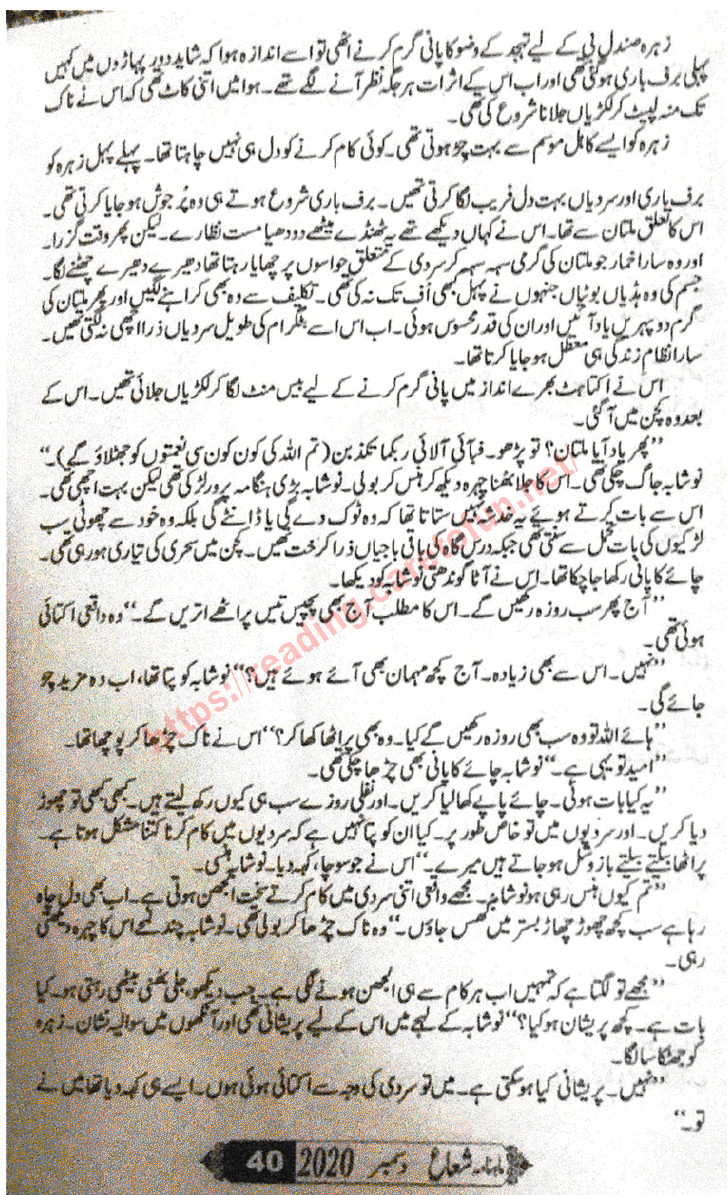 زہرہ صندل بی کے لیے تہجد کے وضو کا پانی گرم کرنے اٹھی تو اسے اندازہ ہوا کہ شاید دور پہاڑوں میں کہیں
پہلی برف باری ہوگئی تھی اور اب اس کے اثرات ہر جگہ نظر آنے لگے تھے۔ ہوا میں اتنی کاٹ تھی کہ اس نے ناک
تک منہ لپیٹ کر لکڑیاں جلانا شروع کی تھی۔
زہرہ کو ایسے کاہل موسم سے بہت چڑ ہوتی تھی۔ کوئی کام کرنے کو دل ہی نہیں چاہتا تھا۔ پہلے پہل زہرہ کو
برف باری اور سردیاں بہت دل فریب لگا کرتی تھیں۔ برف باری شروع ہوتے ہی وہ پُر جوش ہو جایا کرتی تھی۔
اس کا تعلق ملتان سے تھا۔ اس نے کہاں دیکھے تھے یہ ٹھنڈے میٹھے دودھیا مست نظارے۔ لیکن پھر وقت گزرا۔
اور وہ سارا خمار جو ملتان کی گرمی سہہ سہہ کر سردی کے متعلق حواسوں پر چھایا رہتا تھا دھیرے دھیرے چھٹنے لگا۔
جسم کی وہ ہڈیاں بوٹیاں جنہوں نے پہل بھی اُف تک نہ کی تھی۔ تکلیف سے وہ بھی کراہنے لگیں اور پھر ملتان کی
گرم دوپہریں یاد آئیں اور ان کی قدر محسوس ہوئی۔ اب اس اسے بٹگرام کی طویل سردیاں ذرا اچھی نہ لگتی تھیں۔
سارا نظام زندگی ہی معطل ہو جایا کرتا تھا۔
اس نے اکتاہٹ بھرے انداز میں پانی گرم کرنے کے لیے بیس منٹ لگا کر لکڑیاں جلائی تھیں۔ اس کے
بعد وہ کچن میں آگئی۔
”پھر یاد آیا ملتان؟ تو پڑھو۔ فبائی آلائی ربکما تکذبن (تم اللہ کی کون کون سی نعمتوں کو جھٹلاؤ گے)۔“
نوشابہ جاگ چکی تھی۔ اس کا جلا بھنا چہرہ دیکھ کر ہنس کر بولی۔ نوشابہ بڑی ہنگامہ پرور لڑکی تھی لیکن بہت اچھی تھی۔
اس سے بات کرتے ہوئے یہ خدشہ نہیں ستاتا تھا کہ وہ ٹوک دے گی یا ڈانٹے گی بلکہ وہ خود سے چھوٹی سب
لڑکیوں کی بات تحمل سے سنتی تھی جبکہ درس گاہ کی باقی باجیاں ذرا کرخت تھیں۔ کچن میں سحری کی تیاری ہو رہی تھی۔
چائے کا پانی رکھا جا چکا تھا۔ اس نے آٹا گوندھتی نوشابہ کو دیکھا۔
”آج پھر سب روزہ رکھیں گے۔ اس کا مطلب آج بھی پچیس تیس پراٹھے اتریں گے۔“ وہ واقعی اکتائی
ہوئی تھی۔
”نہیں۔ اس سے بھی زیادہ۔ آج کچھ مہمان بھی آئے ہوئے ہیں؟“ نوشابہ کو پتا تھا، اب وہ مزید چڑ
جائے گی۔
”ہائے اللہ تو وہ سب بھی روزہ رکھیں گے کیا۔ وہ بھی پراٹھا کھا کر؟“ اس نے ناک چڑھا کر پوچھا تھا۔
”امید تو یہی ہے۔“ نوشابہ چائے کا پانی بھی چڑھا چکی تھی۔
”یہ کیا بات ہوئی۔ چائے پاپے کھا لیا کریں۔ اور نفلی روزے سب ہی کیوں رکھ لیتے ہیں۔ کبھی کبھی تو چھوڑ
دیا کریں۔ اور سردیوں میں تو خاص طور پر۔ کیا ان کو پتا نہیں ہے کہ سردیوں میں کام کرنا کتنا مشکل ہوتا ہے۔
پراٹھا بیلتے بیلتے بازو شل ہو جاتے ہیں میرے۔“ اس نے جو سوچا، کہہ دیا۔ نوشابہ ہنسی۔
”تم کیوں ہنس رہی ہو نوشابہ۔ مجھے واقعی اتنی سردی میں کام کرتے سخت الجھن ہوتی ہے۔ اب بھی دل چاہ
رہا ہے سب کچھ چھوڑ چھاڑ بستر میں گھس جاؤں۔“ وہ ناک چڑھا کر بولی تھی۔ نوشابہ چند لمحے اس کا چہرہ دیکھتی
رہی۔
”مجھے تو لگتا ہے کہ تمہیں اب ہر کام سے ہی الجھن ہونے لگی ہے۔ جب دیکھو، جلی بھنی بیٹھی رہتی ہو۔ کیا
بات ہے۔ کچھ پریشان ہو کیا؟“ نوشابہ کے لہجے میں اس کے لیے پریشانی تھی اور آنکھوں میں سوالیہ نشان۔ زہرہ
کو جھٹکا سا لگا۔
”نہیں۔ پریشانی کیا ہو سکتی ہے۔ میں تو سردی کی وجہ سے اکتائی ہوئی ہوں۔ ایسے ہی کہہ دیا تھا میں نے
تو۔“
ماہنامہ شعاع دسمبر 2020 40